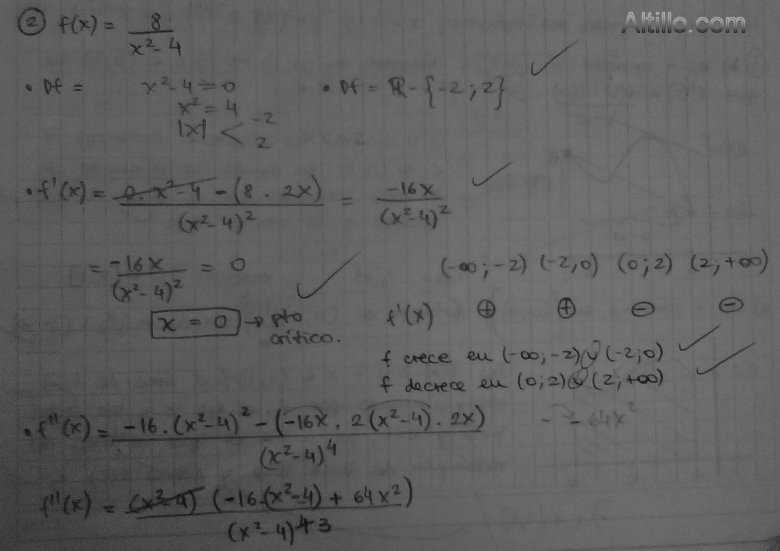 Altillo.com
② f(x) = 8 / (x² - 4)
• Df = x² - 4 = 0 • Df = ℝ - {-2 ; 2} ✓
x² = 4
|x| < -2
2
• f'(x) = (0 . x² - 4 - (8 . 2x)) / (x² - 4)² = -16x / (x² - 4)² ✓
= -16x / (x² - 4)² = 0 ✓
(-∞; -2) (-2, 0) (0; 2) (2; +∞)
x = 0 → pto crítico.
f'(x) ⊕ ⊕ ⊖ ⊖
f crece en (-∞; -2) y (-2; 0) ✓
f decrece en (0; 2) y (2; +∞) ✓
• f''(x) = (-16 . (x² - 4)² - (-16x . 2(x² - 4) . 2x)) / (x² - 4)⁴ - - 64x²
f''(x) = (x² - 4) (-16 . (x² - 4) + 64x²) / (x² - 4)⁴ ³